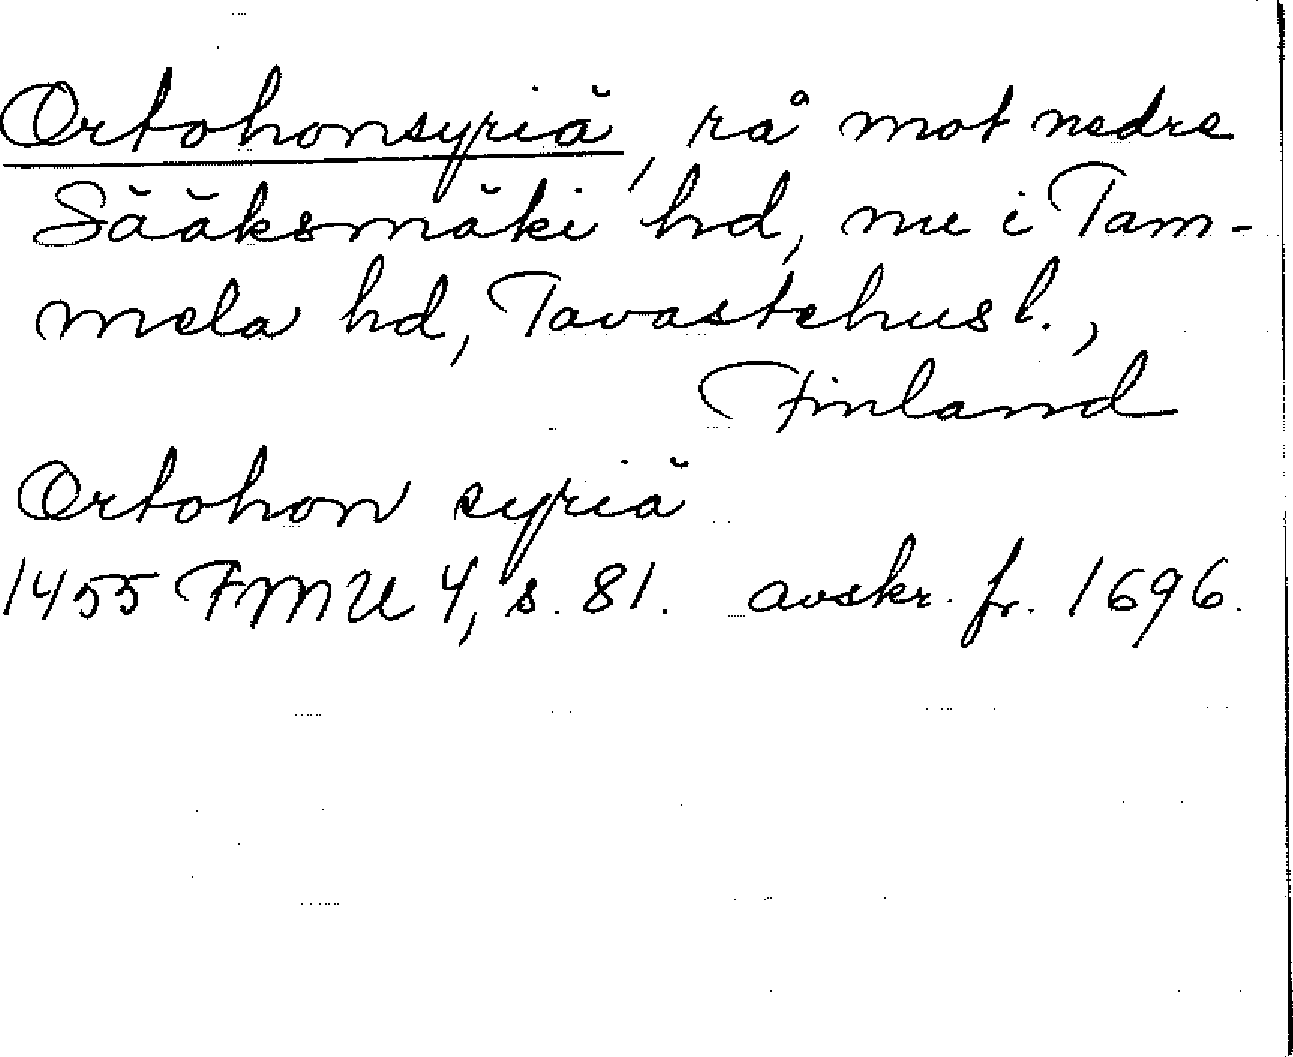 Ortohonsyriä, rå mot nedre
Sääksmäki hd, nu i Tam-
mela hd, Tavastehus l.,
Finland
Ortohon syriä
1455 FMU 4, s. 81. avskr. fr. 1696.